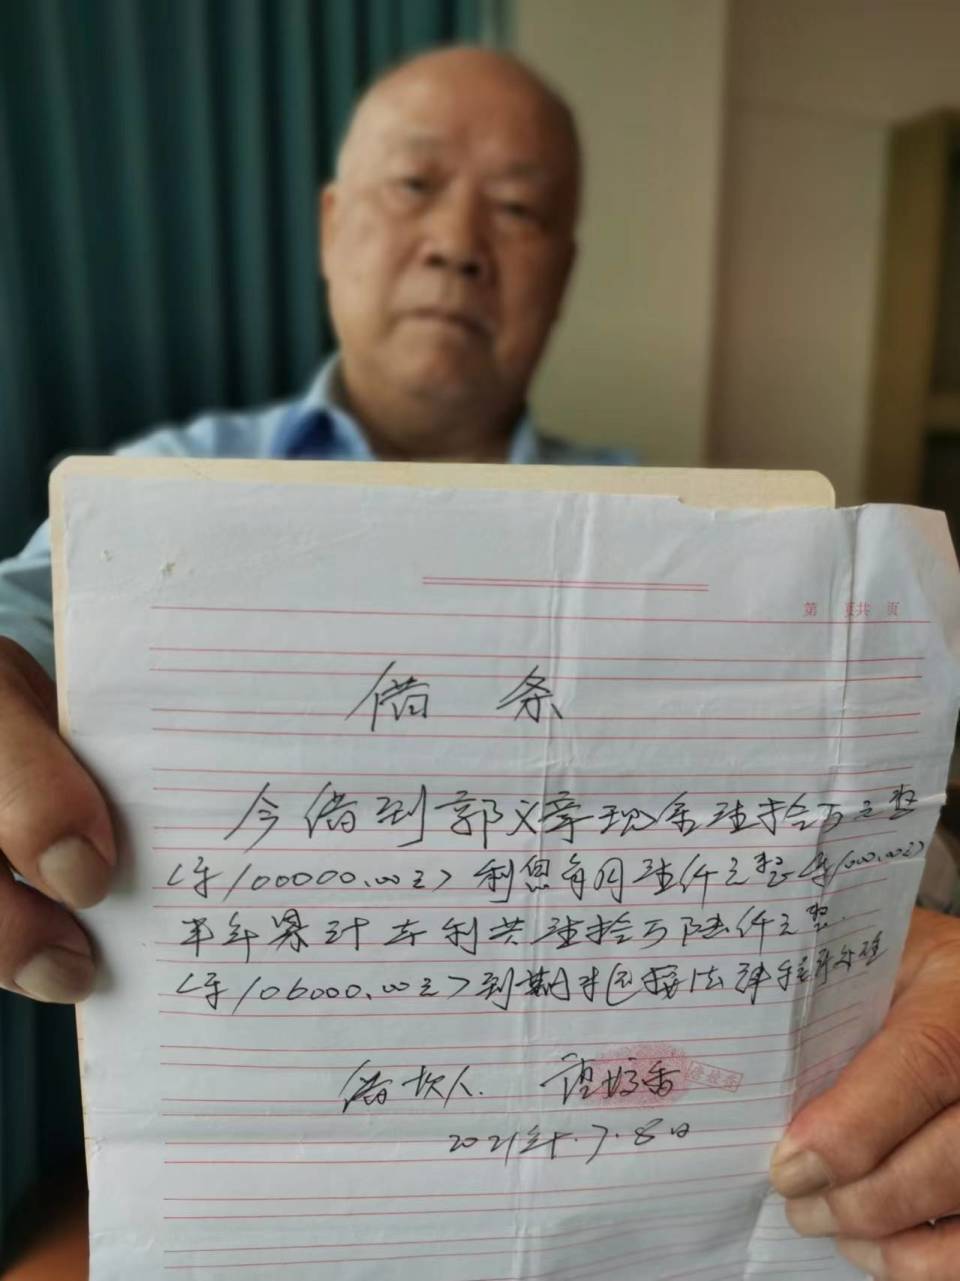 第 页共 页
借 条
今借到郭义章现金壹拾万元整
(¥100000.00元)利息每月壹仟元整(¥1000.00元)
半年累计本利共壹拾万陆仟元整
(¥106000.00元)到期未还按法律程序处理
借款人. 香
2021年.7.8日